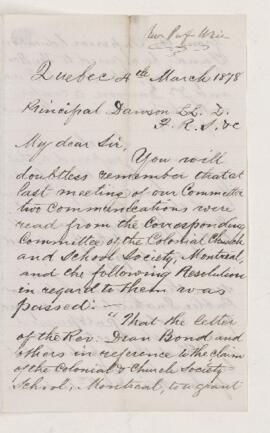 Quebec 4th March 1878
Principal Dawson LL. D.
F. R. S. &c
My dear Sir,
You will
doubtless remember that at
last meeting of our Committee
two communications were
read from the Corresponding
Committee of the Colonial Church
and School Society, Montreal,
and the following Resolution
in regard to them was
passed: —
"That the letter
of the Rev. Dean Bond and
others in reference to the claim
of the Colonial & Church Society
School, Montreal, to a grant